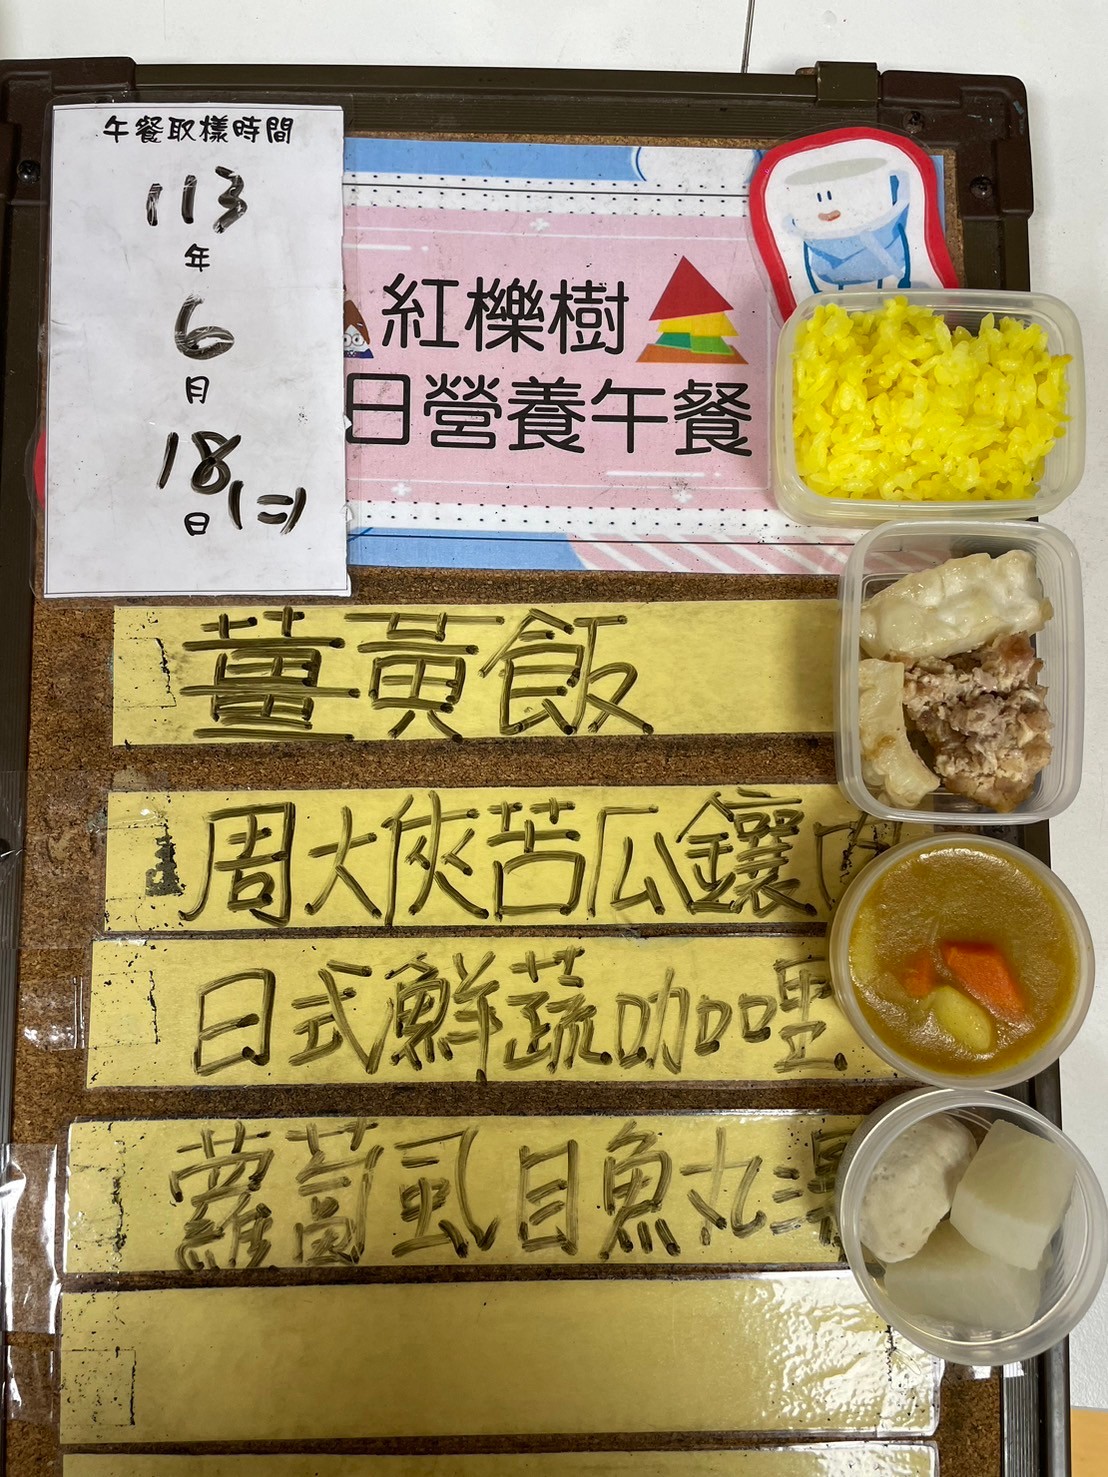 午餐取樣時間
113
年
6
月
18(二)
日
紅櫟樹
日營養午餐
薑黃飯
周大俠苦瓜鑲
日式鮮蔬咖哩
蘿蔔虱目魚丸湯